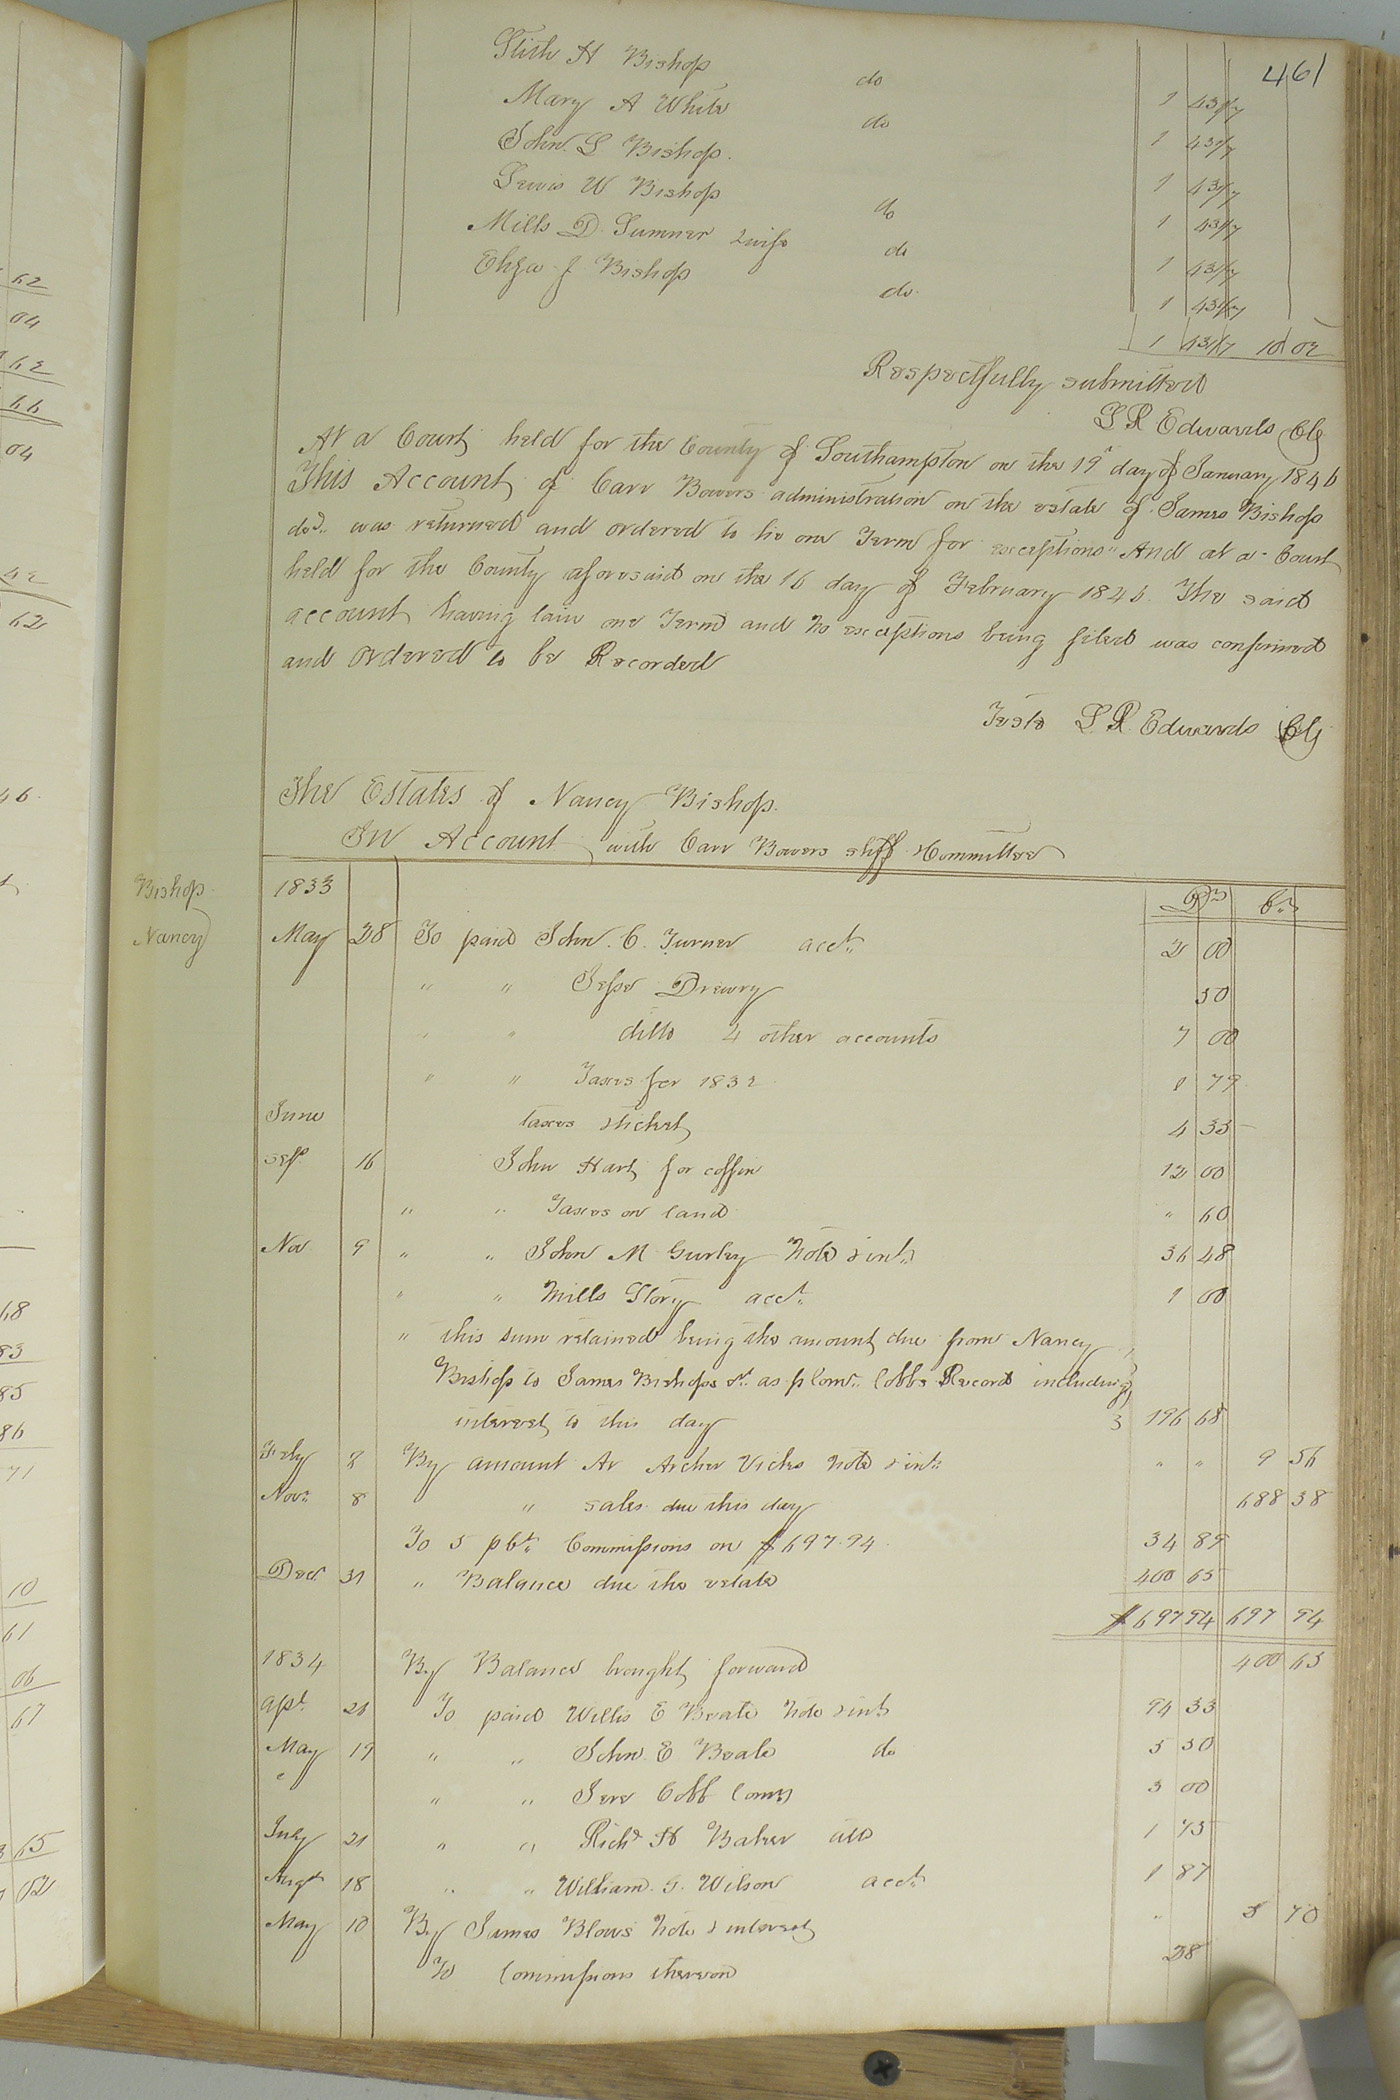 461
Stith H Bishop do 1 43 1/7
Mary A White do 1 43 1/7
John. S Bishop. 1 43 1/7
Lewis W Bishop do 1 43 1/7
Mills D. Sumner & wife do 1 43 1/7
Eliza J Bishop do. 1 43 1/7
1 43 1/7 10 02
Respectfully submitted
L R Edwards Clk
At a Court held for the County of Southampton on the 19" day of January 1846
This Account of Carr Bowers administration on the estate of James Bishop
decd. was returned and ordered to lie one Term for exceptions" And at a Court
held for the County aforesaid on the 16 day of February 1846. The said
account having lain one Term and no exceptions being filed was confirmed
and ordered to be Recorded
Teste L R Edwards Clk
The Estates of Nancy Bishop.
In Account with Carr Bowers shff & Committee
Bishop
Nancy
1833 Drs Crs
May 28 To paid John. C. Turner acct. 2 00
" " Jesse Drewry 50
" " ditto 4 other accounts 7 00
" " Taxes for 1832 1 79
June taxes & ticket 4 35
Sept 16 John Hart for coffin 12 00
" " Taxes on land " 60
Nov 9 " " John M Gurley note & int. 36 48
" " Mills Story acct. 1 00
" this sum retained being the amount due from Nancy
Bishop to James Bishops st. as p Comr. Cobbs Record including
interest to this day 3 196 68
Feby 8 By amount Ar Archer Vicks note & int. " " 9 56
Novr 8 " sales due this day 688 38
To 5 p Ct. Commissions on $697.94 34 89
Decr. 31 " Balance due the estate 400 65
$697 94 697 94
1834 By Balance brought forward 400 65
Apl. 26 To paid Willis E Beale note & int 94 33
May 19 " " John. E Beale do 5 50
" " Jere Cobb Comr 3 00
July 21 " " Richd H Baker atto 1 75
Augt 18 " " William. G. Wilson acct. 1 87
May 10 By James Blows note & interest " 5 70
To Commissions thereon 28
62
04
62
66
04
42
62
46.
68
83
85
86
71
10
61
06
67
65
02